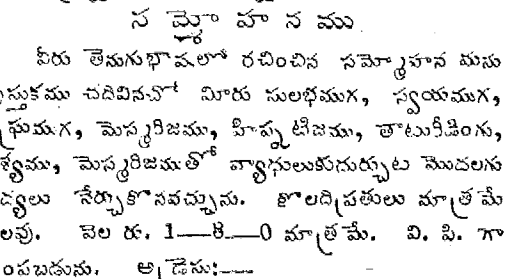 సమ్మోహనము
వీరు తెనుగుభాషలో రచించిన సమ్మోహన మను
స్తుకము చదివినచో మీరు సులభముగ, స్వయముగ,
ఘ్రముగ, మెస్మరిజము, హిప్నటిజము, తాటురీడింగు,
శ్యము, మెస్మరిజముతో వ్యాధులుకుదుర్చుట మొదలగు
ద్యలు నేర్చుకొనవచ్చును. కొలదిప్రతులు మాత్రమే
లవు. వెల రు. 1—8—0 మాత్రమే. వి. పి. గా
ంపబడును. అడ్రెసు:—